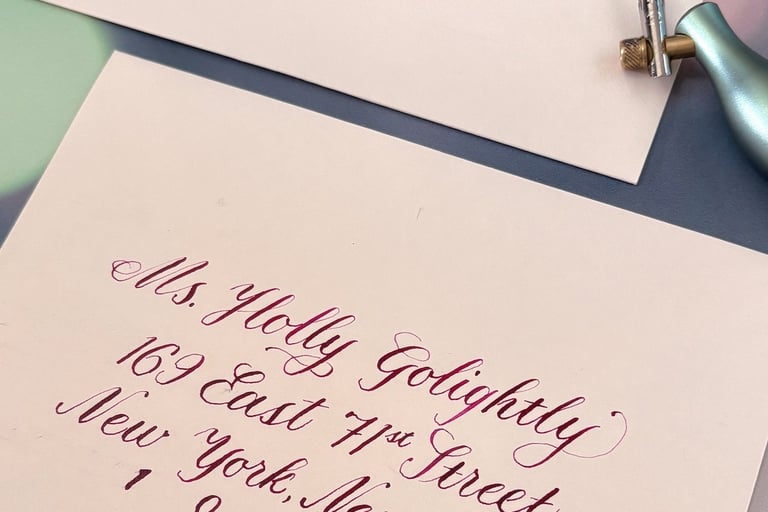 Ms. Holly Golightly
169 East 71st Street
New York,
1